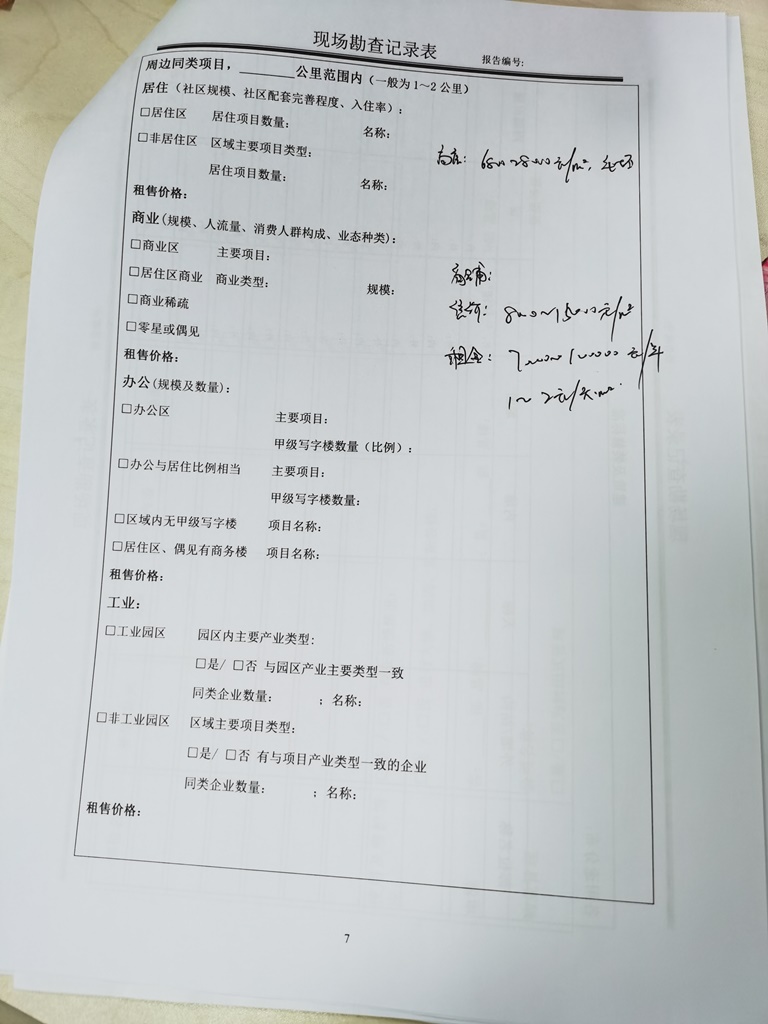 现场勘查记录表
报告编号:
周边同类项目，______公里范围内（一般为1～2公里）
居住（社区规模、社区配套完善程度、入住率）:
□居住区 居住项目数量: 名称:
□非居住区 区域主要项目类型:
居住项目数量: 名称:
租售价格:
商业(规模、人流量、消费人群构成、业态种类):
□商业区 主要项目:
商铺:
□居住区商业 商业类型: 规模:
□商业稀疏
□零星或偶见
租售价格:
租金:
1～2元/天·m²
办公(规模及数量):
□办公区 主要项目:
甲级写字楼数量（比例）:
□办公与居住比例相当 主要项目:
甲级写字楼数量:
□区域内无甲级写字楼 项目名称:
□居住区、偶见有商务楼 项目名称:
租售价格:
工业:
□工业园区 园区内主要产业类型:
□是/ □否 与园区产业主要类型一致
同类企业数量: ; 名称:
□非工业园区 区域主要项目类型:
□是/ □否 有与项目产业类型一致的企业
同类企业数量: ; 名称:
租售价格:
7